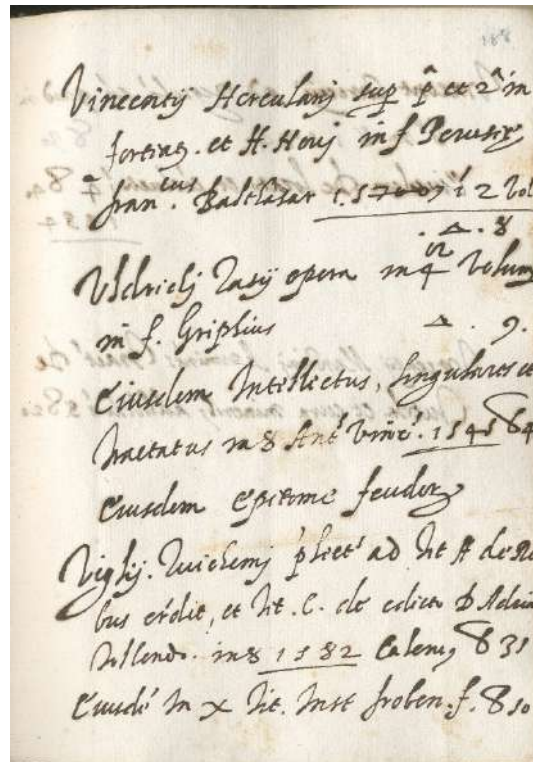 181
Vincentij Herculanj sup p̃ et 2ã in
fortiat. et ff. Novj in f Perusie
fran.cus Balthasar 1.5 i 2 vol
. Δ . 8
Vldricij Zasij opera in 4 or Volum
in f. Griphius Δ . 9.
Eiusdem Intellectus, singulares et
tractatus in 8 Ant' Vinc'. 1545 84
Eiusdem epitome feudor
Viglij. Zuichemj p̃lect' ad tit ff de Re
bus credit, et tit. C. de edicto D Adria
tollendo. in 8 1582 Caleny 8 31
Eiusdē In X tit. Inst froben. f. 8 10